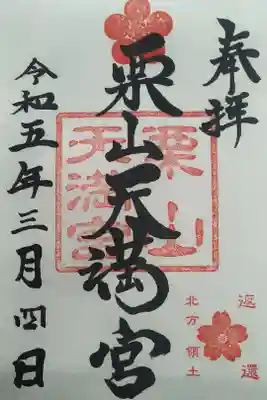 奉拝
栗山天満宮
栗山
天満宮
令和五年三月四日
返還
北方領土